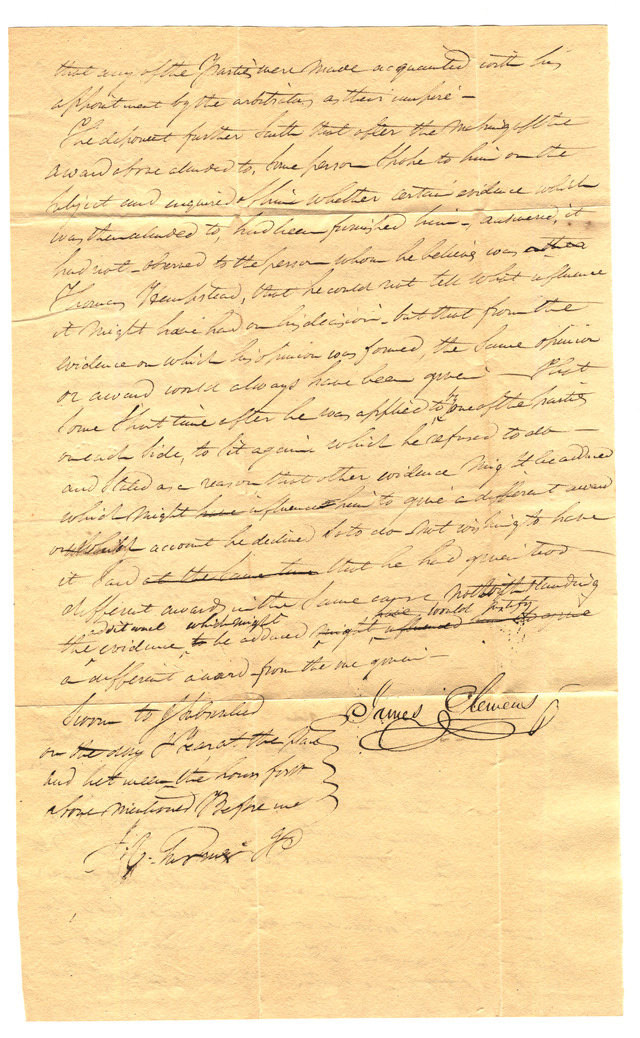 that any of the Parties were made acquanted with his
appointment by the arbitrators as their umpire –
The deponent further Saith that after the making of the
award above aluded to, Some person Spoke to him on the
Subject and enquired of him whether certain evidence which
was then aluded to, had been furnished him – answered, it
had not – observed to the person whom he believes was
Thomas Hempstead, that he could not tell what influence
it might have had on his decision – but that from the
evidence on which his opinion was formed, the Same opinion
or award would always have been given – That
Some Short time after he was applied to by one of the parties
on each Side, to Sit again which he refused to do –
and Stated as a reason that other evidence might be adduced
which might have influenced him to give a different award
on account he declined So to do not wishing to have
it Said at the Same time that he had given two
different awards in the Same cause notwithstanding
additional which might have would justify
the evidence to be adduced might influenced to give
a different award from the one given –
Sworn to & Subscribed
James Clemens Jr
on the day & Year at the place
and between the hours first
above mentioned Before me
JP